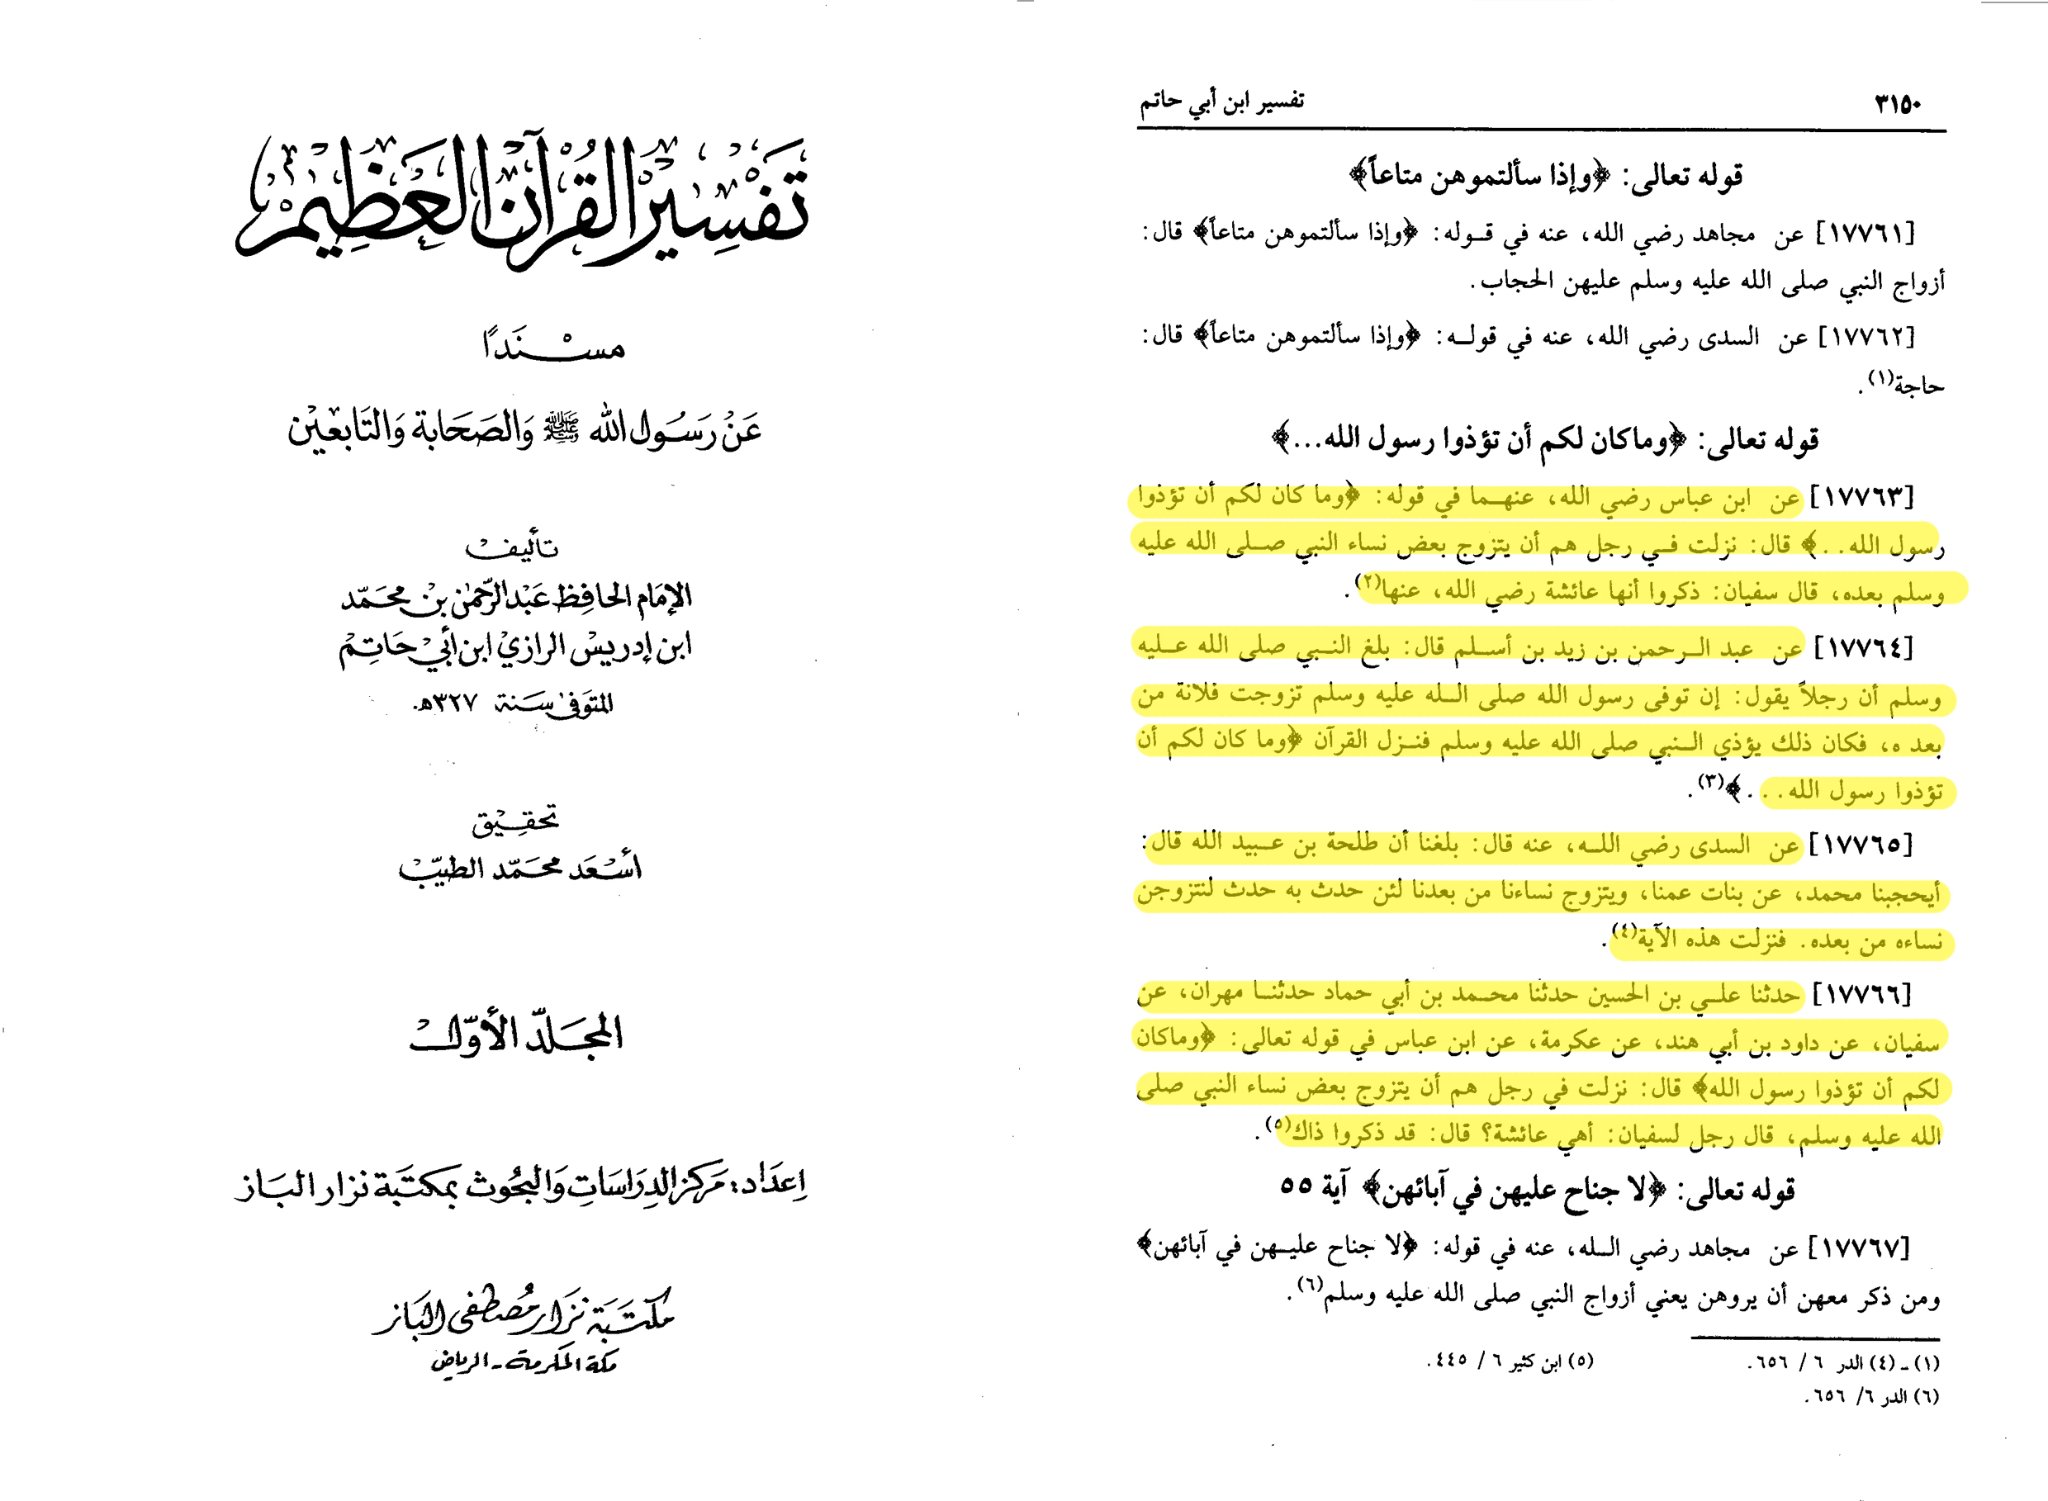 تفسير ابن أبي حاتم
٣١٥٠
قوله تعالى: ﴿وإذا سألتموهن متاعاً﴾
[١٧٧٦١] عن مجاهد رضي الله، عنه في قوله: ﴿وإذا سألتموهن متاعاً﴾ قال:
أزواج النبي صلى الله عليه وسلم عليهن الحجاب.
[١٧٧٦٢] عن السدى رضي الله، عنه في قوله: ﴿وإذا سألتموهن متاعاً﴾ قال:
حاجة(١).
قوله تعالى: ﴿وماكان لكم أن تؤذوا رسول الله...﴾
[١٧٧٦٣] عن ابن عباس رضي الله، عنهما في قوله: ﴿وما كان لكم أن تؤذوا
رسول الله..﴾ قال: نزلت في رجل هم أن يتزوج بعض نساء النبي صلى الله عليه
وسلم بعده، قال سفيان: ذكروا أنها عائشة رضي الله، عنها(٢).
[١٧٧٦٤] عن عبد الرحمن بن زيد بن أسلم قال: بلغ النبي صلى الله عليه
وسلم أن رجلاً يقول: إن توفى رسول الله صلى الله عليه وسلم تزوجت فلانة من
بعد ه، فكان ذلك يؤذي النبي صلى الله عليه وسلم فنزل القرآن ﴿وما كان لكم أن
تؤذوا رسول الله...﴾(٣).
[١٧٧٦٥] عن السدى رضي الله، عنه قال: بلغنا أن طلحة بن عبيد الله قال:
أيحجبنا محمد، عن بنات عمنا، ويتزوج نساءنا من بعدنا لئن حدث به حدث لنتزوجن
نساءه من بعده. فنزلت هذه الآية(٤).
[١٧٧٦٦] حدثنا علي بن الحسين حدثنا محمد بن أبي حماد حدثنا مهران، عن
سفيان، عن داود بن أبي هند، عن عكرمة، عن ابن عباس في قوله تعالى: ﴿وماكان
لكم أن تؤذوا رسول الله﴾ قال: نزلت في رجل هم أن يتزوج بعض نساء النبي صلى
الله عليه وسلم، قال رجل لسفيان: أهي عائشة؟ قال: قد ذكروا ذاك(٥).
قوله تعالى: ﴿لا جناح عليهن في آبائهن﴾ آية ٥٥
[١٧٧٦٧] عن مجاهد رضي الله، عنه في قوله: ﴿لا جناح عليهن في آبائهن﴾
ومن ذكر معهن أن يروهن يعني أزواج النبي صلى الله عليه وسلم(٦).
(١) ـ (٤) الدر ٦ / ٦٥٦.
(٥) ابن كثير ٦ / ٤٤٥.
(٦) الدر ٦/ ٦٥٦.
تَفْسِيرُ القُرْآنِ العَظِيمِ
مسْنَدًا
عَنْ رَسُولِ الله ﷺ وَالصَحَابَة وَالتَابعَين
تأليف
الإمَام الحَافِظ عَبْد الرَّحمٰن بن محمَّد
ابن إدريس الرازي ابن أبي حَاتِم
المتَوفى سَنة ٣٢٧ه.
تحقيق
أسْعَد محمَّد الطيّب
المجَلدّ الأوّل
إعدَاد: مَركز الدِرَاسَاتِ وَالبُحُوث بمكتبَة نزار البَاز
مكتَبَة نزار مُصطفى البَاز
مكة المكرمة - الرياض